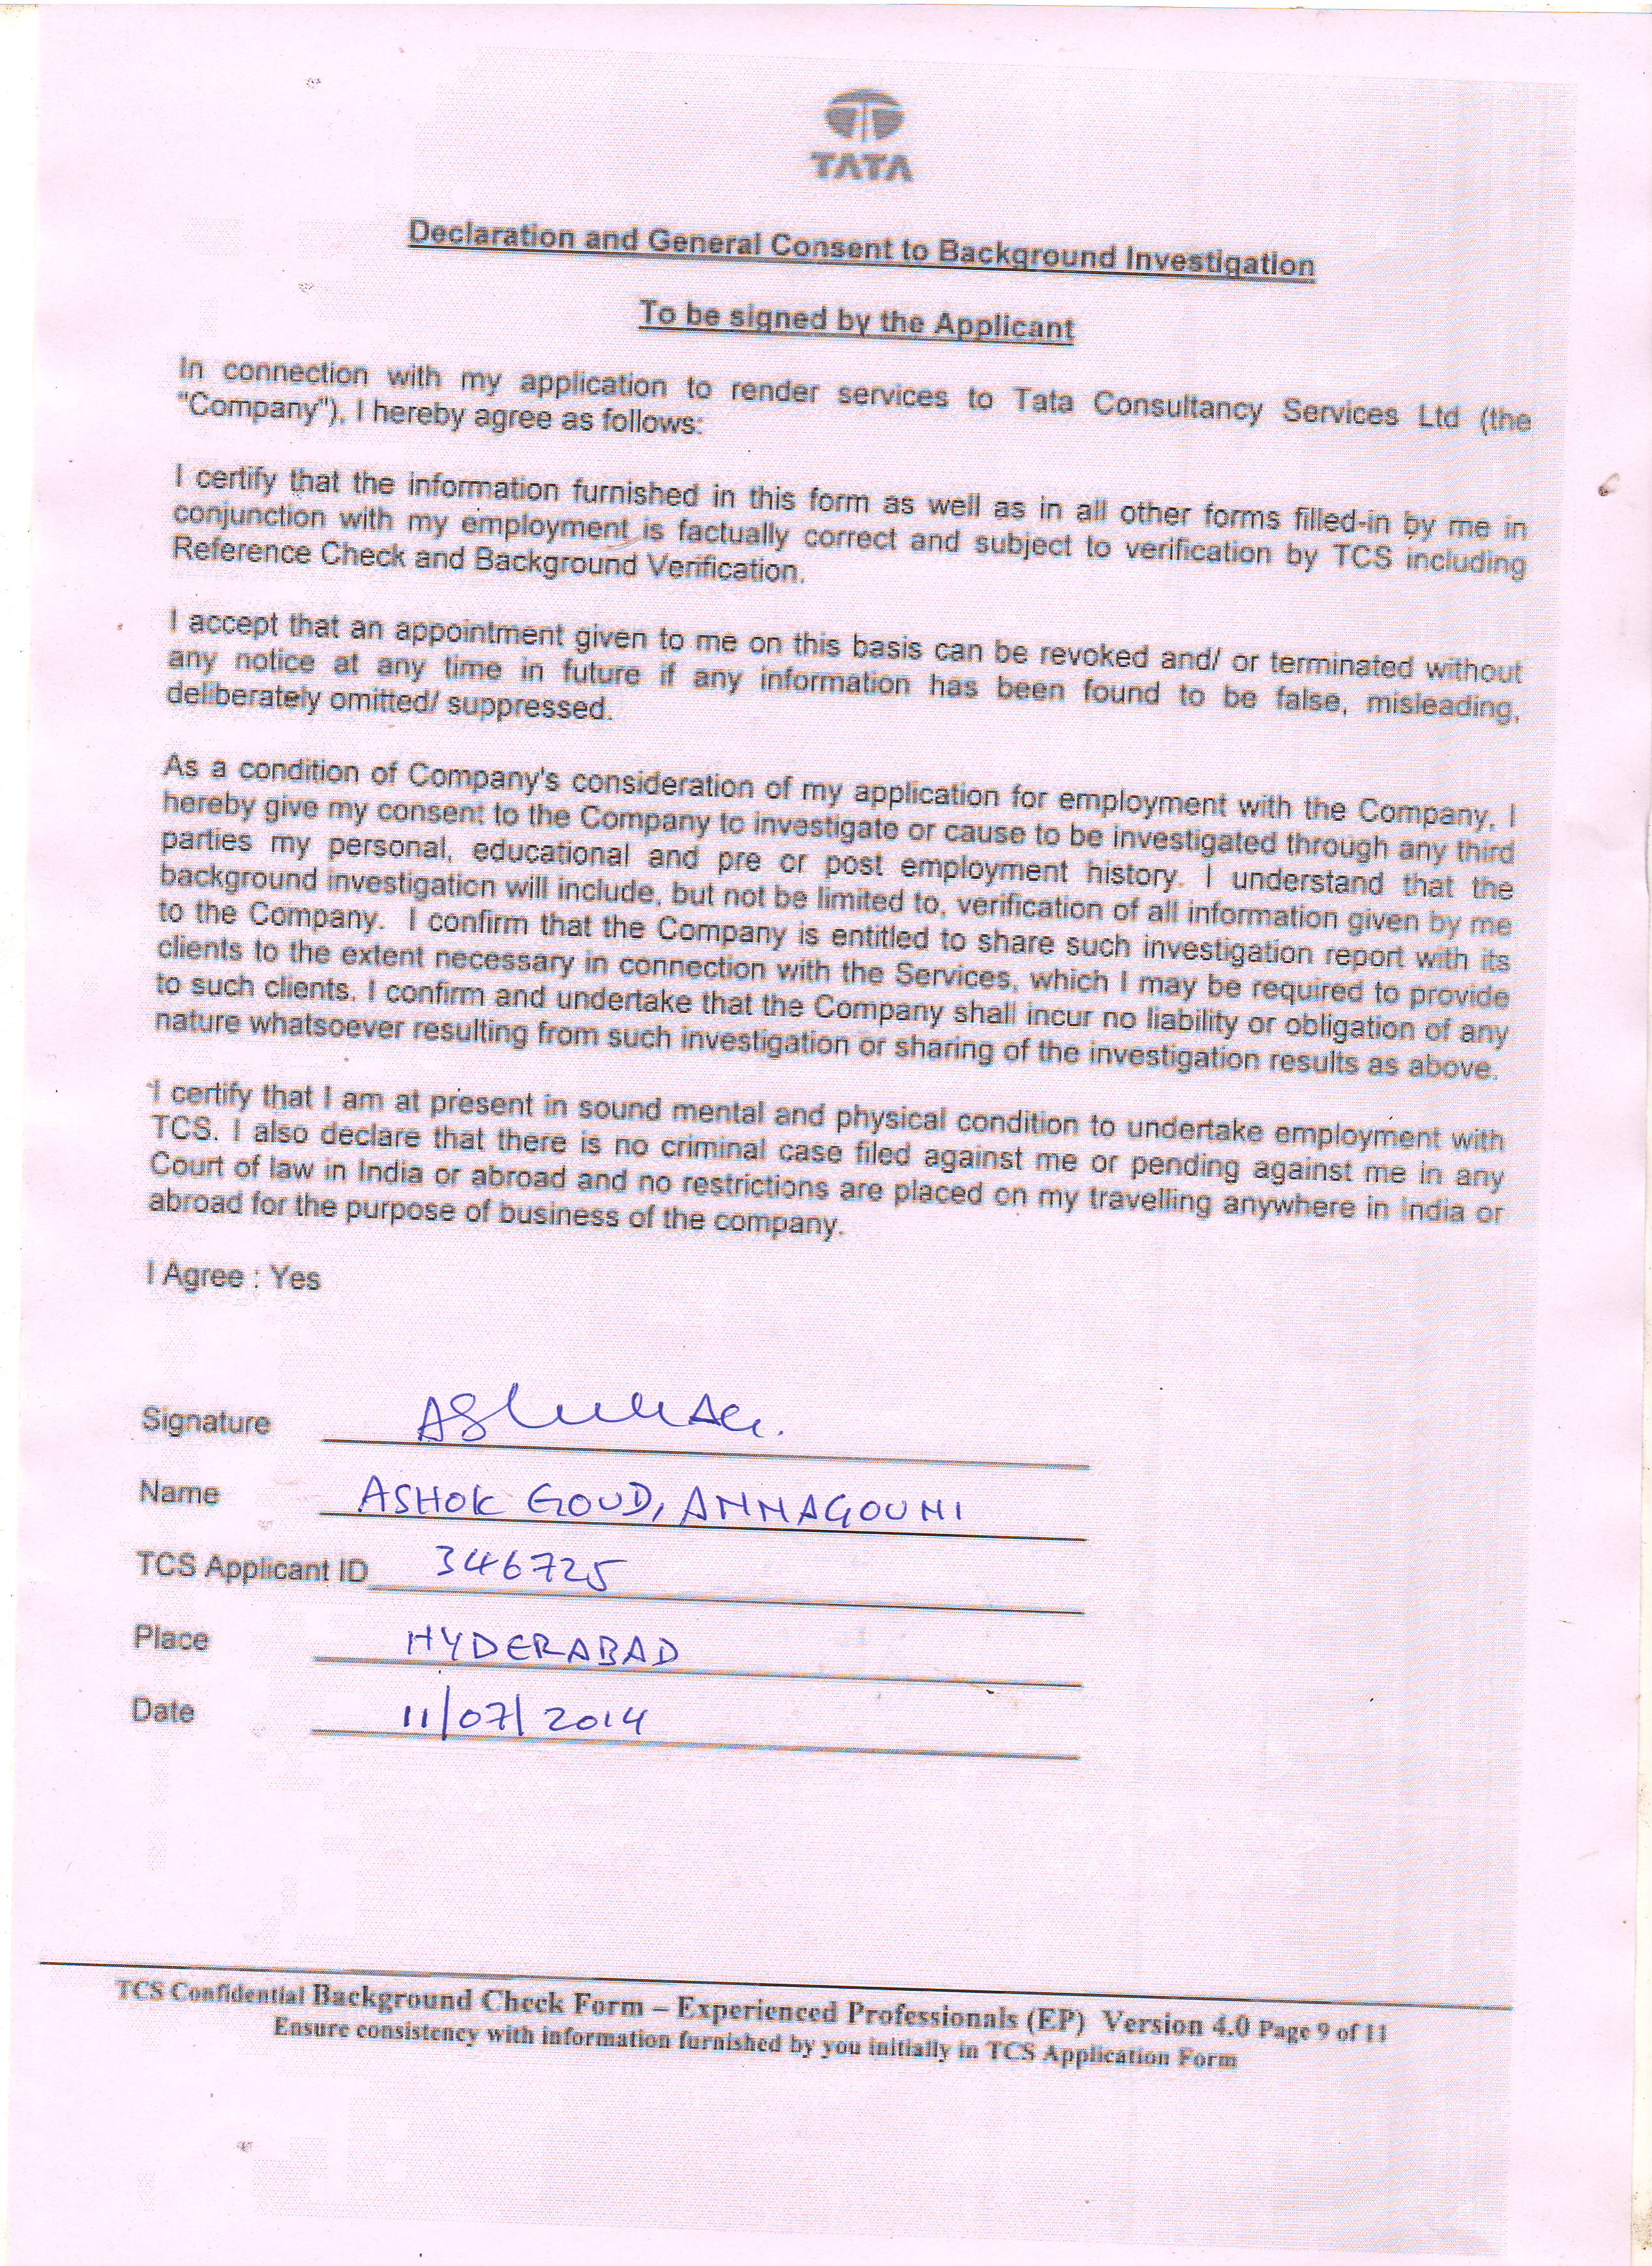 TATA
Declaration and General Consent to Background Investigation
To be signed by the Applicant
In connection with my application to render services to Tata Consultancy Services Ltd (the
"Company"), I hereby agree as follows:
I certify that the information furnished in this form as well as in all other forms filled-in by me in
conjunction with my employment is factually correct and subject to verification by TCS including
Reference Check and Background Verification.
I accept that an appointment given to me on this basis can be revoked and/ or terminated without
any notice at any time in future if any information has been found to be false, misleading,
deliberately omitted/ suppressed.
As a condition of Company's consideration of my application for employment with the Company, I
hereby give my consent to the Company to investigate or cause to be investigated through any third
parties my personal, educational and pre or post employment history. I understand that the
background investigation will include, but not be limited to, verification of all information given by me
to the Company. I confirm that the Company is entitled to share such investigation report with its
clients to the extent necessary in connection with the Services, which I may be required to provide
to such clients. I confirm and undertake that the Company shall incur no liability or obligation of any
nature whatsoever resulting from such investigation or sharing of the investigation results as above.
I certify that I am at present in sound mental and physical condition to undertake employment with
TCS. I also declare that there is no criminal case filed against me or pending against me in any
Court of law in India or abroad and no restrictions are placed on my travelling anywhere in India or
abroad for the purpose of business of the company.
I Agree : Yes
Signature
Name ASHOK GOUD, ANNAGOUNI
TCS Applicant ID 346725
Place HYDERABAD
Date 11/07/2014
TCS Confidential Background Check Form – Experienced Professionals (EP) Version 4.0 Page 9 of 11
Ensure consistency with information furnished by you initially in TCS Application Form